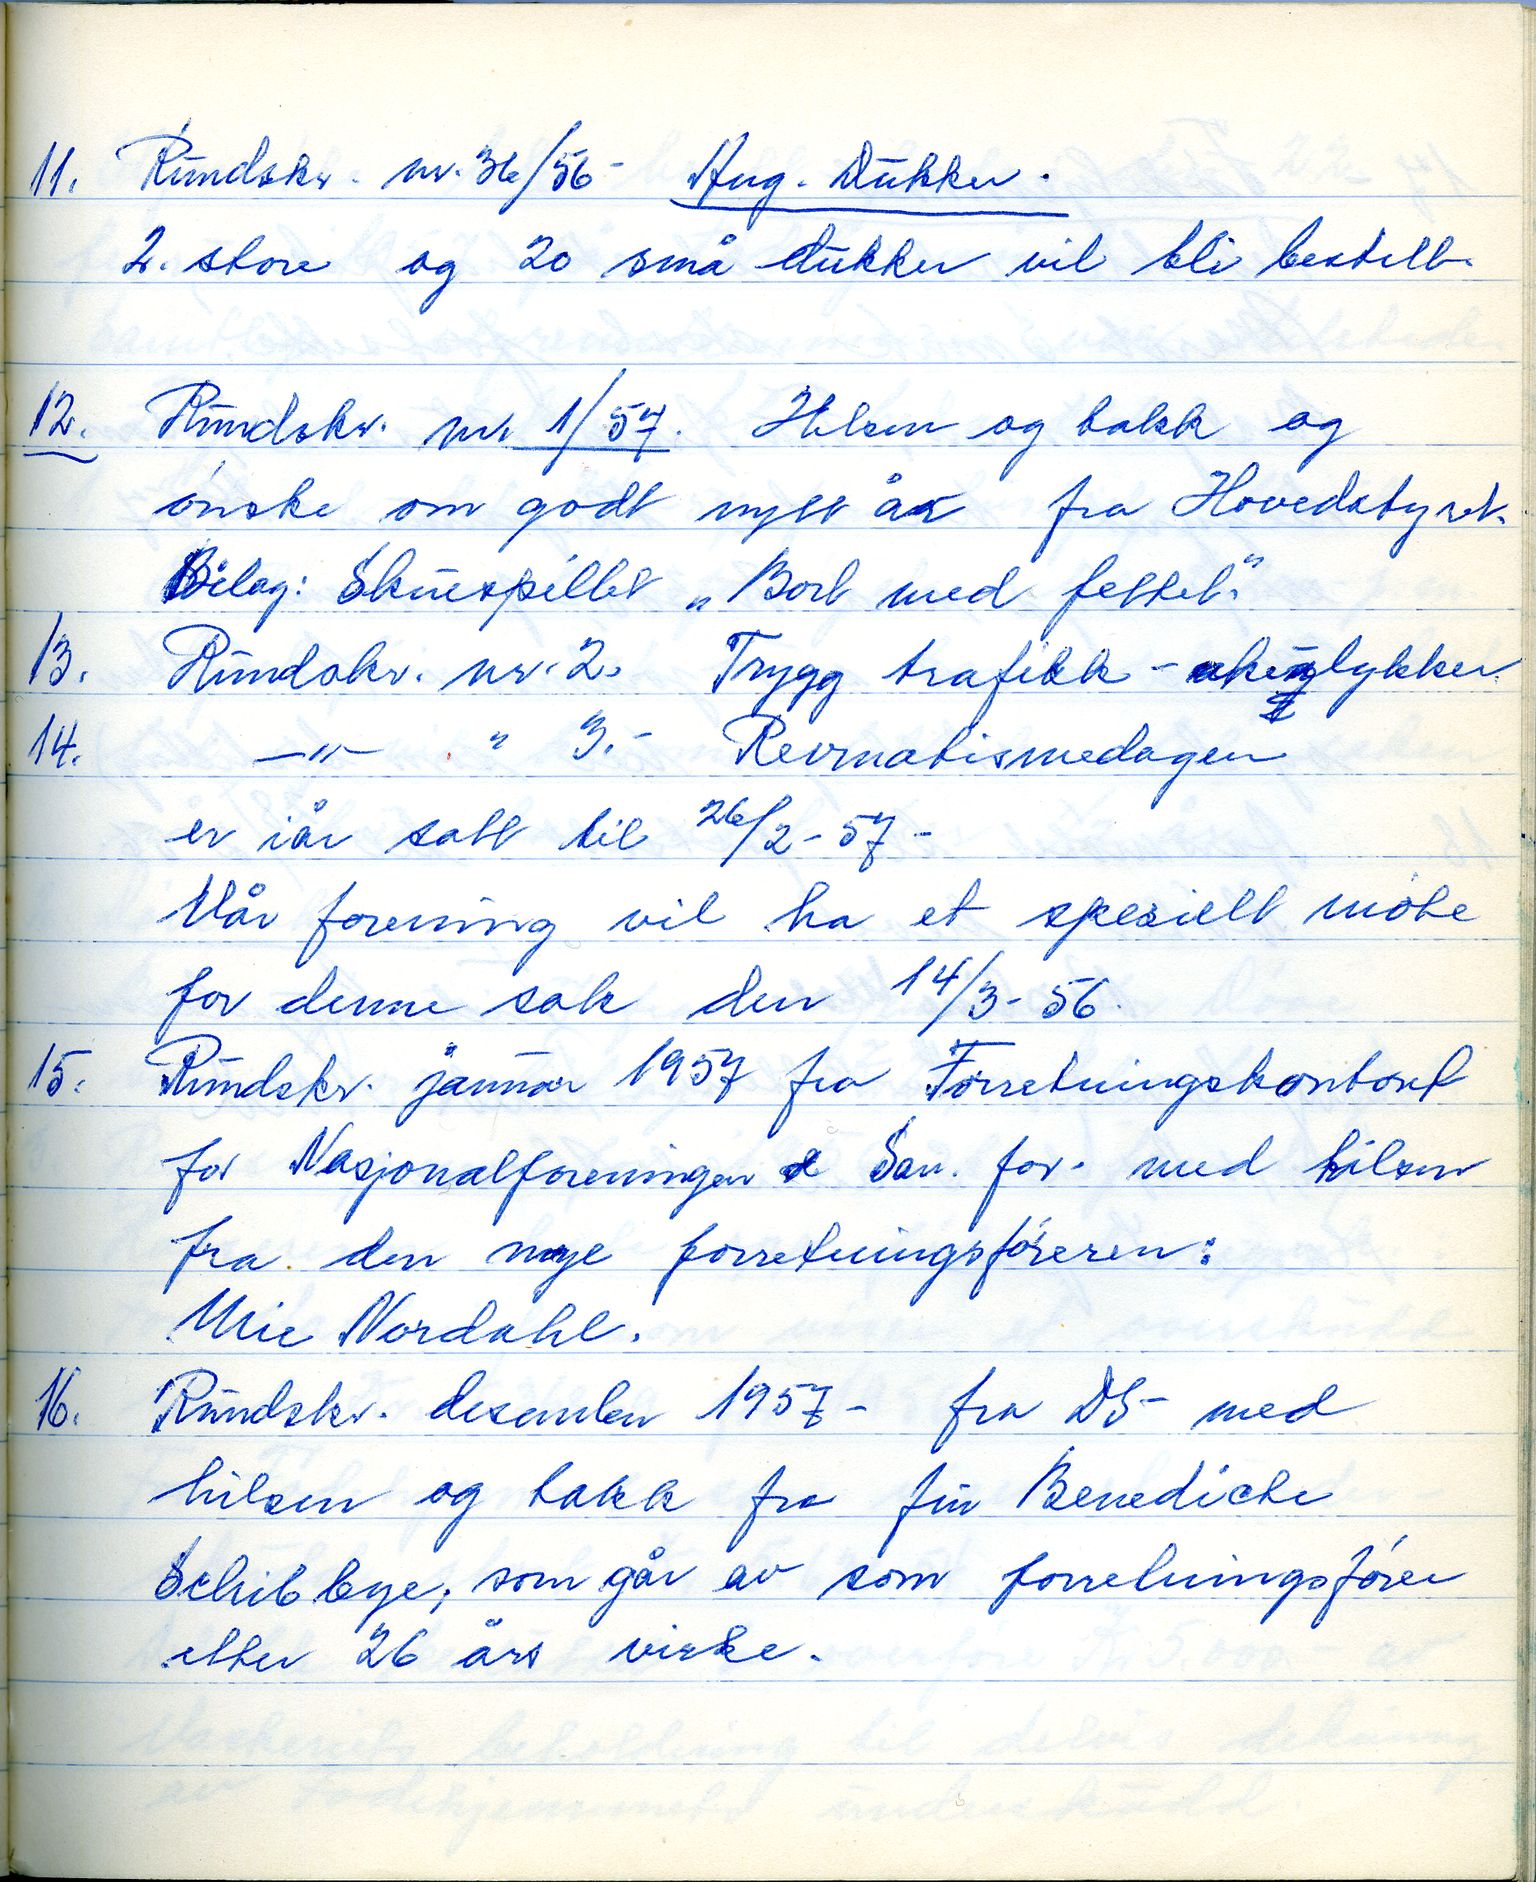 11. Rundskr. nr. 36/56 - Ang. Dukker.
2. store og 20 små dukker vil bli bestilt.
12. Rundskr. nr. 1/57. Hilsen og takk og
ønske om godt nytt år fra Hovedstyret.
Bilag: Skuespillet „Bort med fettet."
13. Rundskr. nr. 2. Trygg trafikk -
14. -"- " 3.- Revmatismedagen
er i år satt til 26/2 - 57 -
Vår forening vil ha et spesielt møte
for denne sak den 14/3 - 56.
15. Rundskr. januar 1957 fra Forretningskontoret
for Nasjonalforeningen & San. for. med hilsen
fra den nye forretningsføreren:
Mie Nordahl.
16. Rundskr. desember 1957 - fra DS - med
hilsen og takk fra frk Benedicte
Schibbye, som går av som forretningsfører
etter 26 års virke.